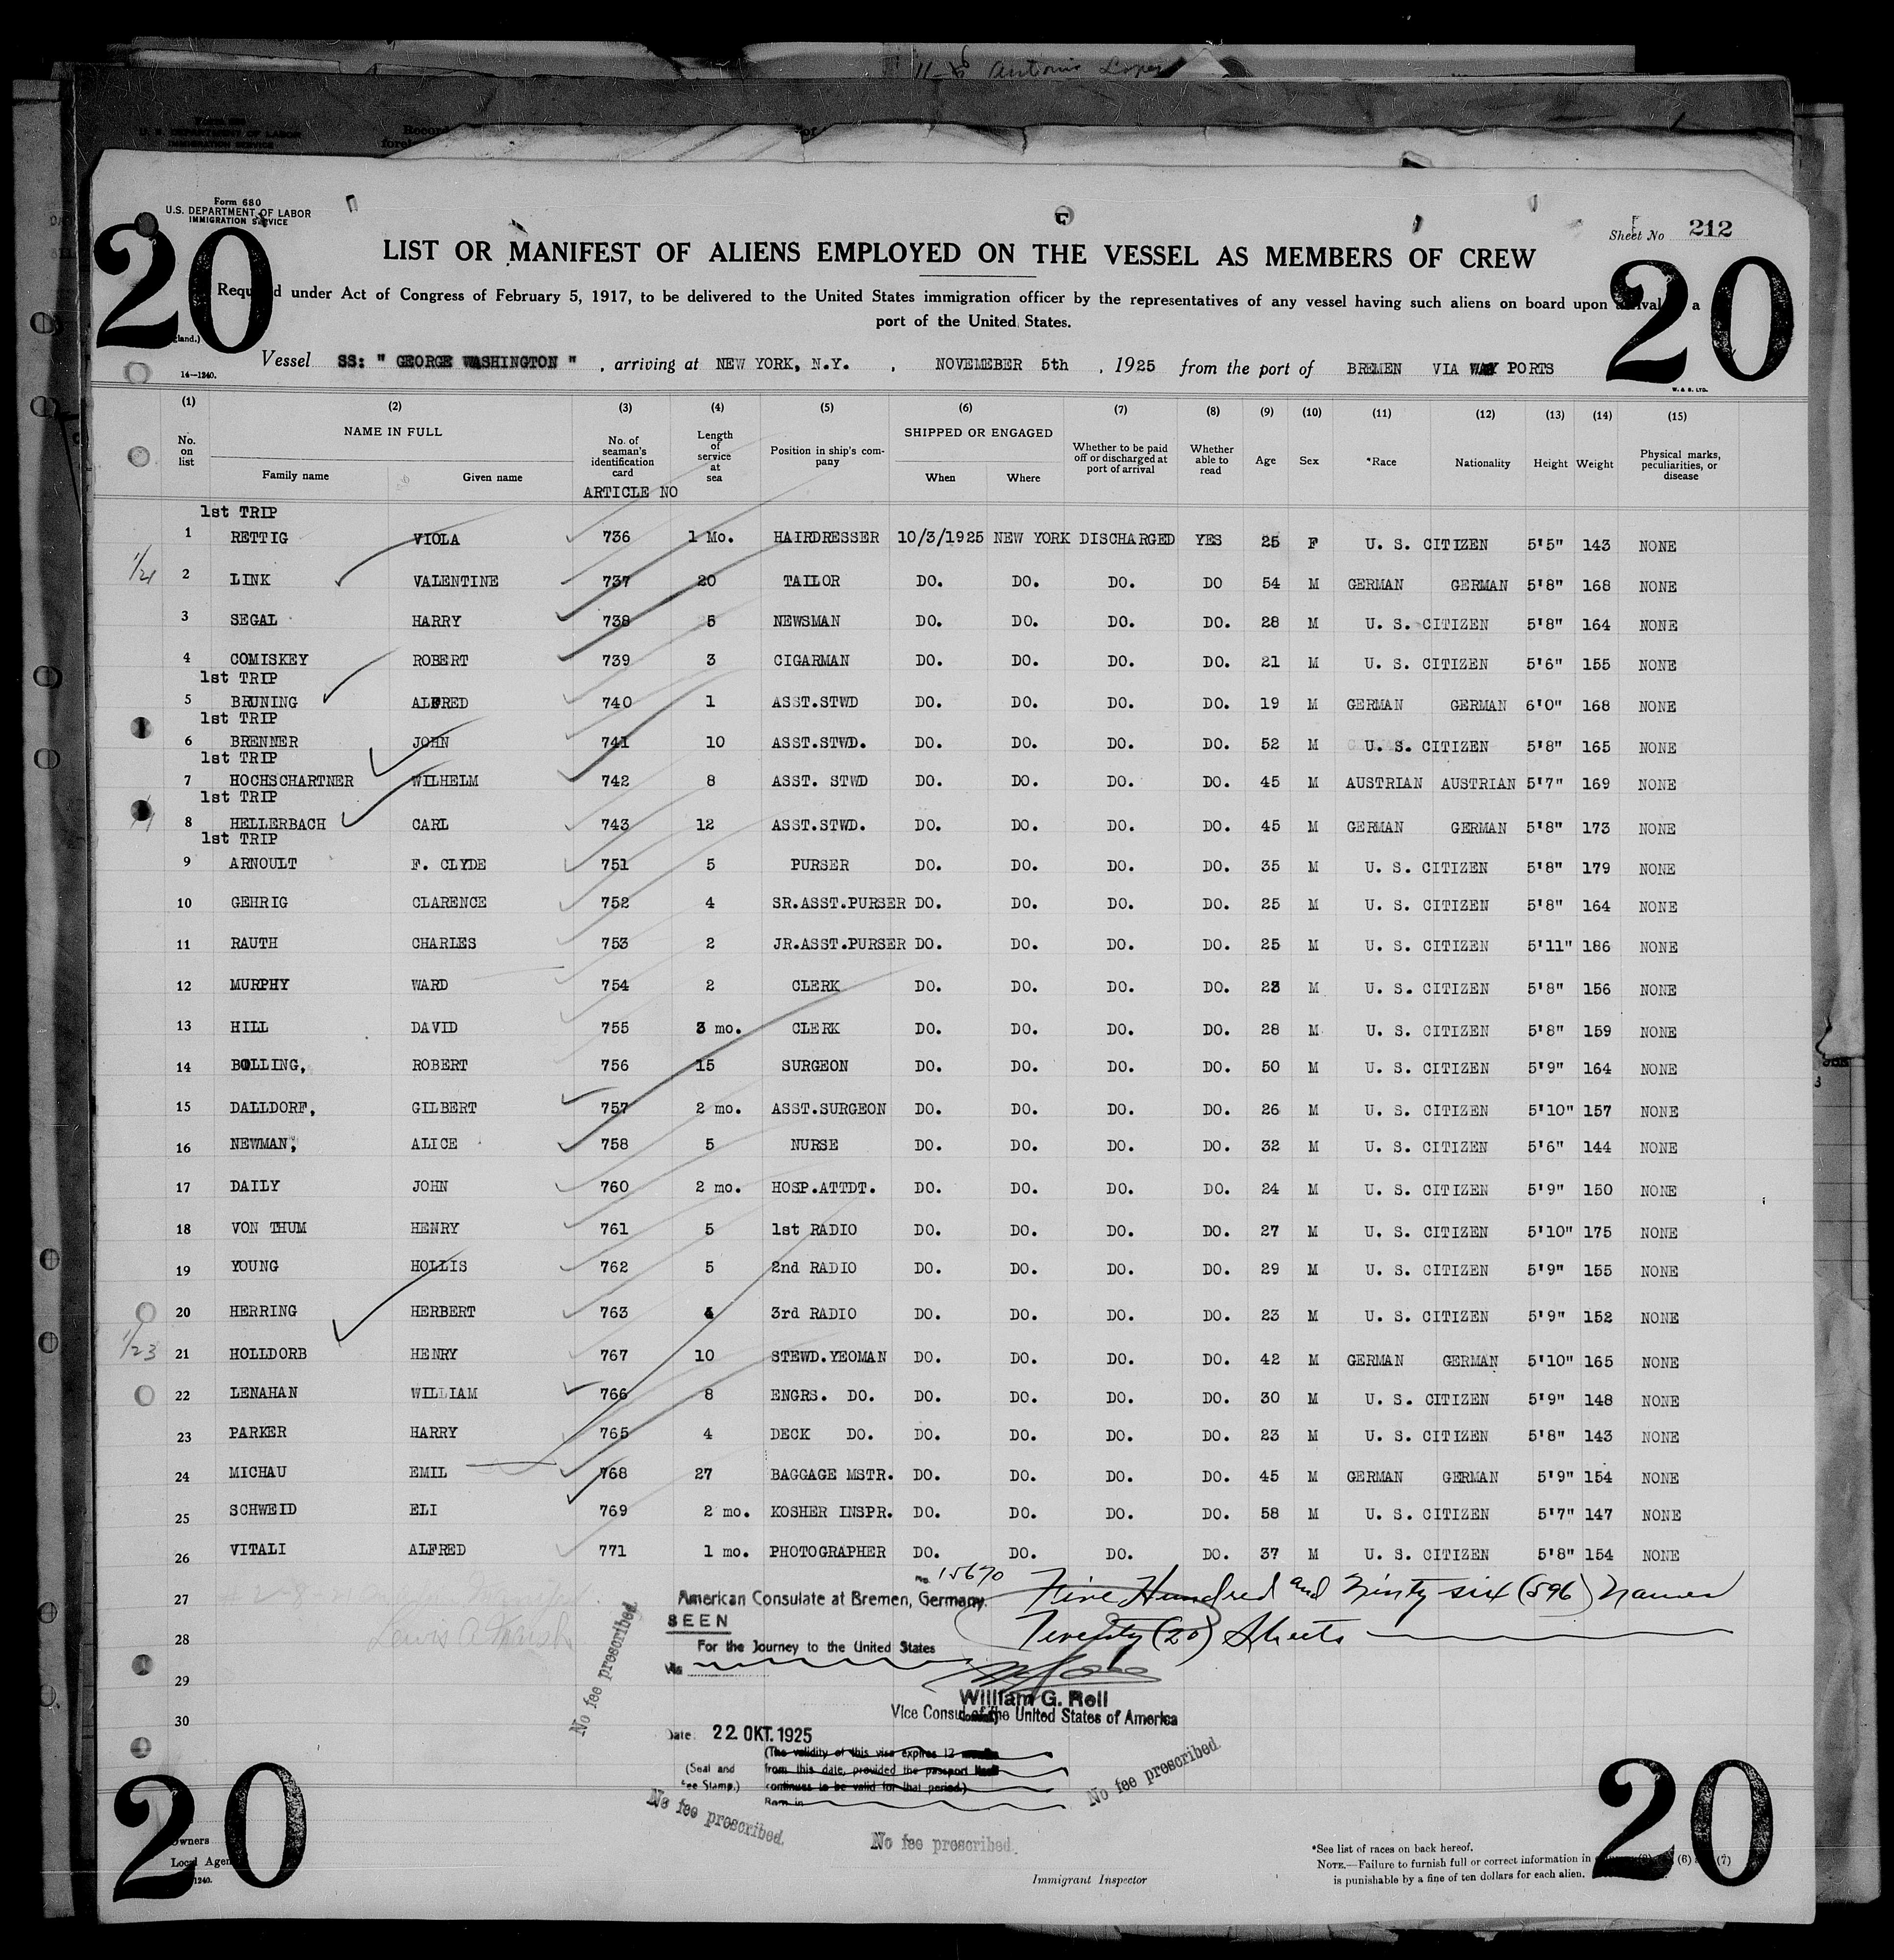 11-6 Antonio Lopes
Form 680
U.S. DEPARTMENT OF LABOR
IMMIGRATION SERVICE
20
20
Sheet No 212
LIST OR MANIFEST OF ALIENS EMPLOYED ON THE VESSEL AS MEMBERS OF CREW
Requ d under Act of Congress of February 5, 1917, to be delivered to the United States immigration officer by the representatives of any vessel having such aliens on board upon arrival a
port of the United States.
Vessel SS: " GEORGE WASHINGTON " , arriving at NEW YORK, N.Y. , NOVEMEBER 5th , 1925 from the port of BREMEN VIA WAY PORTS
14—1240.
W. & S. LTD.
(1) (2) (3) (4) (5) (6) (7) (8) (9) (10) (11) (12) (13) (14) (15)
No. on list NAME IN FULL Family name Given name No. of seaman's identification card Length of service at sea Position in ship's company SHIPPED OR ENGAGED When Where Whether to be paid off or discharged at port of arrival Whether able to read Age Sex *Race Nationality Height Weight Physical marks, peculiarities, or disease
ARTICLE NO
1st TRIP
1 RETTIG VIOLA 736 1 Mo. HAIRDRESSER 10/3/1925 NEW YORK DISCHARGED YES 25 F U. S. CITIZEN 5'5" 143 NONE
2 LINK VALENTINE 737 20 TAILOR DO. DO. DO. DO 54 M GERMAN GERMAN 5'8" 168 NONE
3 SEGAL HARRY 738 5 NEWSMAN DO. DO. DO. DO. 28 M U. S. CITIZEN 5'8" 164 NONE
4 COMISKEY ROBERT 739 3 CIGARMAN DO. DO. DO. DO. 21 M U. S. CITIZEN 5'6" 155 NONE
1st TRIP
5 BRUNING ALFRED 740 1 ASST.STWD DO. DO. DO. DO. 19 M GERMAN GERMAN 6'0" 168 NONE
1st TRIP
6 BRENNER JOHN 741 10 ASST.STWD. DO. DO. DO. DO. 52 M U. S. CITIZEN 5'8" 165 NONE
1st TRIP
7 HOCHSCHARTNER WILHELM 742 8 ASST. STWD DO. DO. DO. DO. 45 M AUSTRIAN AUSTRIAN 5'7" 169 NONE
1st TRIP
8 HELLERBACH CARL 743 12 ASST.STWD. DO. DO. DO. DO. 45 M GERMAN GERMAN 5'8" 173 NONE
1st TRIP
9 ARNOULT F. CLYDE 751 5 PURSER DO. DO. DO. DO. 35 M U. S. CITIZEN 5'8" 179 NONE
10 GEHRIG CLARENCE 752 4 SR.ASST.PURSER DO. DO. DO. DO. 25 M U. S. CITIZEN 5'8" 164 NONE
11 RAUTH CHARLES 753 2 JR.ASST.PURSER DO. DO. DO. DO. 25 M U. S. CITIZEN 5'11" 186 NONE
12 MURPHY WARD 754 2 CLERK DO. DO. DO. DO. 23 M U. S. CITIZEN 5'8" 156 NONE
13 HILL DAVID 755 3 mo. CLERK DO. DO. DO. DO. 28 M U. S. CITIZEN 5'8" 159 NONE
14 BOLLING, ROBERT 756 15 SURGEON DO. DO. DO. DO. 50 M U. S. CITIZEN 5'9" 164 NONE
15 DALLDORF, GILBERT 757 2 mo. ASST.SURGEON DO. DO. DO. DO. 26 M U. S. CITIZEN 5'10" 157 NONE
16 NEWMAN, ALICE 758 5 NURSE DO. DO. DO. DO. 32 M U. S. CITIZEN 5'6" 144 NONE
17 DAILY JOHN 760 2 mo. HOSP.ATTDT. DO. DO. DO. DO. 24 M U. S. CITIZEN 5'9" 150 NONE
18 VON THUM HENRY 761 5 1st RADIO DO. DO. DO. DO. 27 M U. S. CITIZEN 5'10" 175 NONE
19 YOUNG HOLLIS 762 5 2nd RADIO DO. DO. DO. DO. 29 M U. S. CITIZEN 5'9" 155 NONE
20 HERRING HERBERT 763 4 3rd RADIO DO. DO. DO. DO. 23 M U. S. CITIZEN 5'9" 152 NONE
1/23
21 HOLLDORB HENRY 767 10 STEWD.YEOMAN DO. DO. DO. DO. 42 M GERMAN GERMAN 5'10" 165 NONE
22 LENAHAN WILLIAM 766 8 ENGRS. DO. DO. DO. DO. DO. 30 M U. S. CITIZEN 5'9" 148 NONE
23 PARKER HARRY 765 4 DECK DO. DO. DO. DO. DO. 23 M U. S. CITIZEN 5'8" 143 NONE
24 MICHAU EMIL 768 27 BAGGAGE MSTR. DO. DO. DO. DO. 45 M GERMAN GERMAN 5'9" 154 NONE
25 SCHWEID ELI 769 2 mo. KOSHER INSPR. DO. DO. DO. DO. 58 M U. S. CITIZEN 5'7" 147 NONE
26 VITALI ALFRED 771 1 mo. PHOTOGRAPHER DO. DO. DO. DO. 37 M U. S. CITIZEN 5'8" 154 NONE
27
28
29
30
No. 15670
American Consulate at Bremen, Germany.
SEEN
For the Journey to the United States
Via
Five Hundred and Ninty six (596) names
Twenty (20) Sheets
William G. Roll
Vice Consul of the United States of America
Date 22. OKT. 1925
(The validity of this visa expires 12 months
from this date, provided the passport
continues to be valid for that period.)
Born in
(Seal and
Fee Stamp.)
No fee prescribed.
No fee prescribed.
No fee prescribed.
No fee prescribed.
20
20
Owners
Local Agen
1240.
Immigrant Inspector
*See list of races on back hereof.
NOTE.—Failure to furnish full or correct information in (6) (7)
is punishable by a fine of ten dollars for each alien.